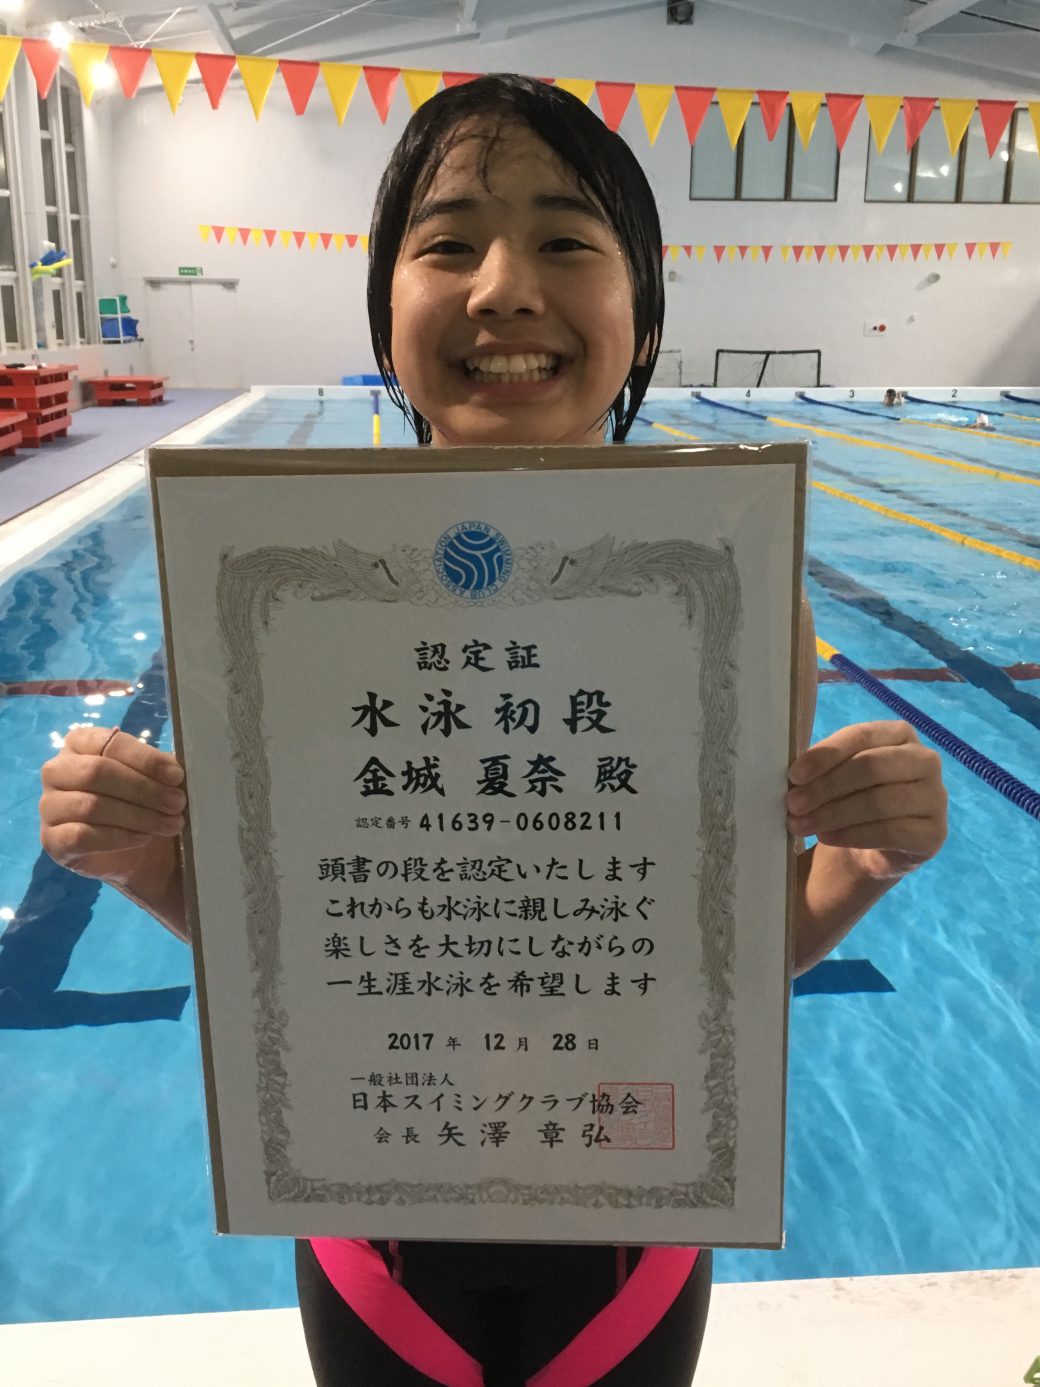 8
4
3
2
JAPAN SWIMMING CLUB ASSOCIATION
認定証
水泳初段
金城 夏奈 殿
認定番号 41639-0608211
頭書の段を認定いたします
これからも水泳に親しみ泳ぐ
楽しさを大切にしながらの
一生涯水泳を希望します
2017 年 12 月 28 日
一般社団法人
日本スイミングクラブ協会
会長 矢澤 章弘